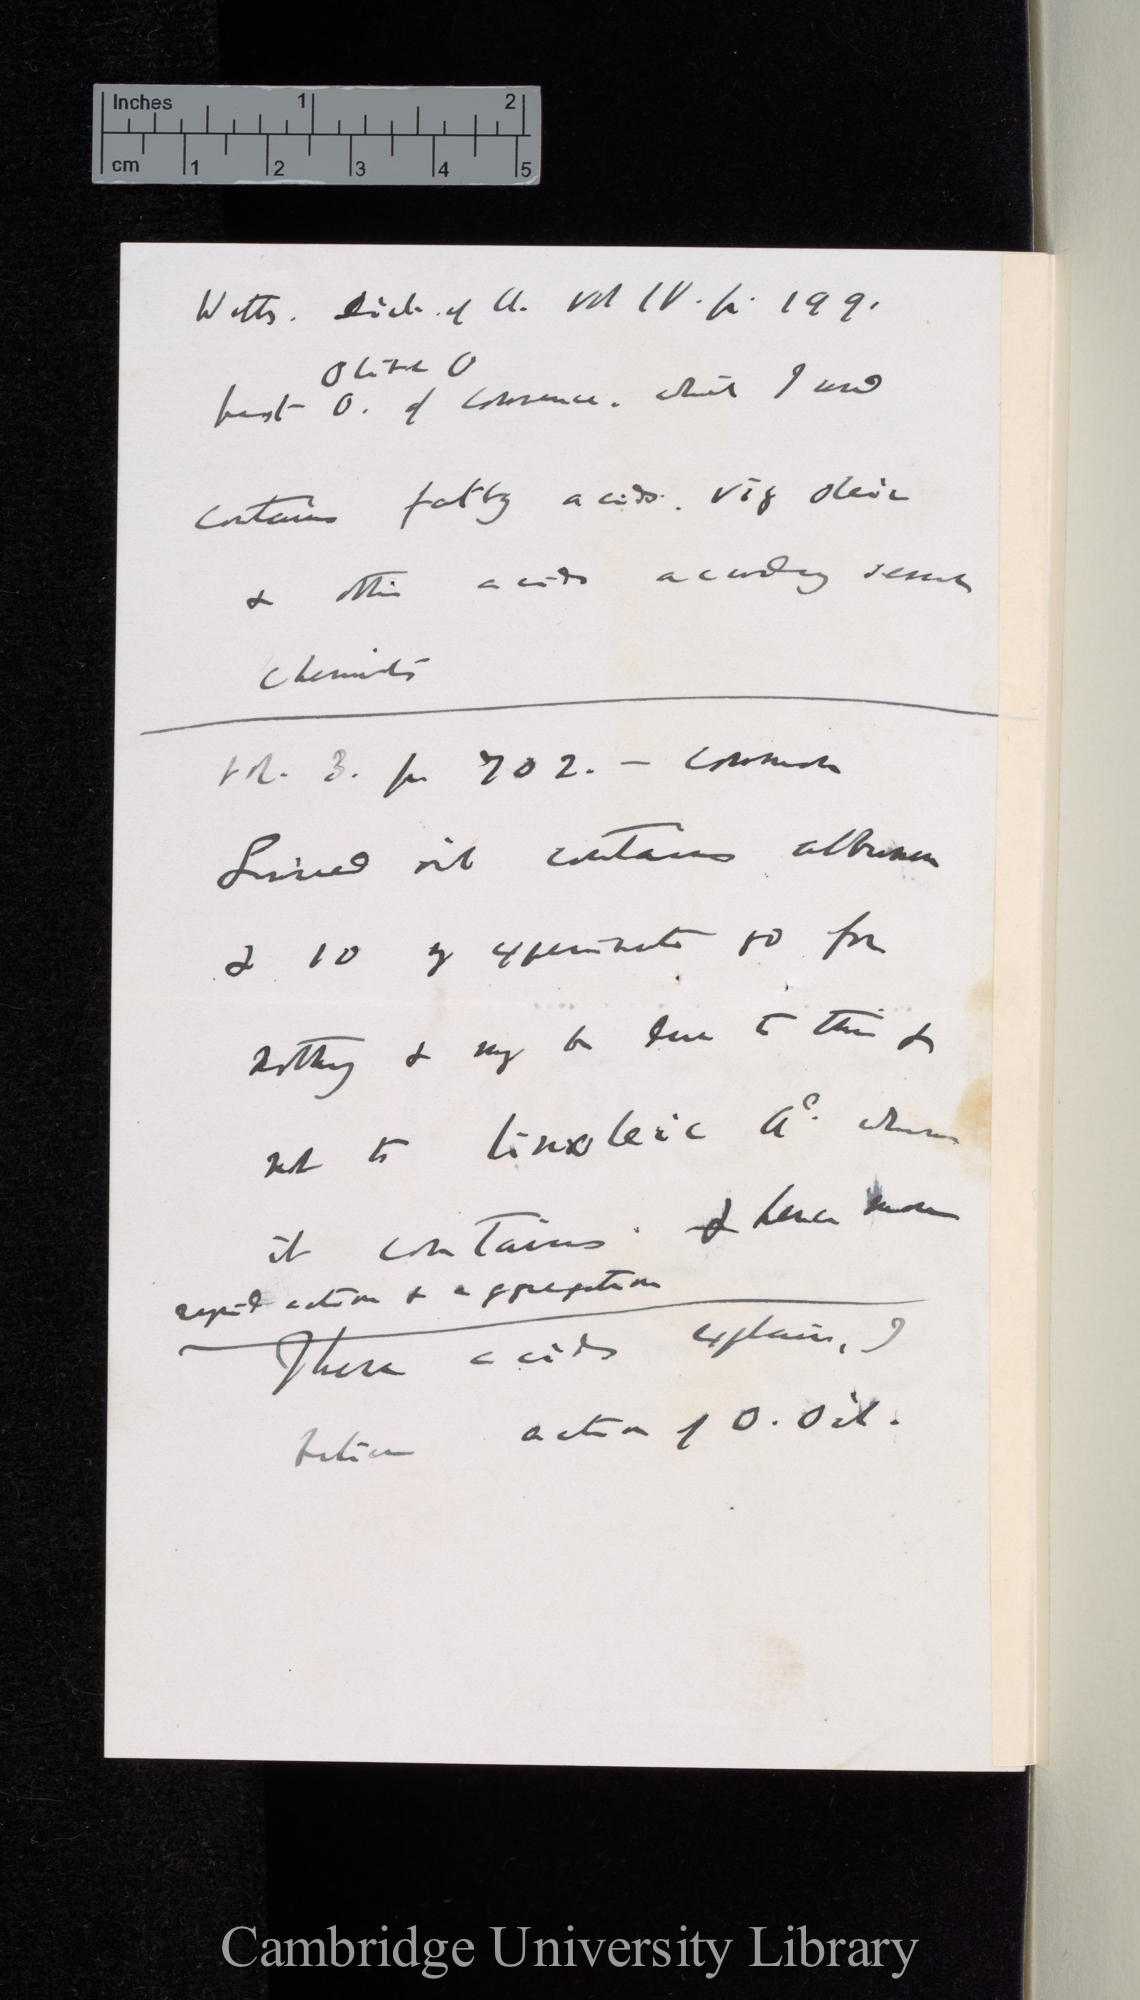 Inches 1 2
cm 1 2 3 4 5
Watts. Dict. of Ch. vol IV. p. 199.
Olive O
best O. of commerce. which I used
contains fatty acids. viz oleic
& other acids according several
chemists
vol. 3. p 702. — common
Linseed oil contains albumen
& so my experiments go for
nothing & may be due to this &
not to linoleic A^c. which
it contains. & hence more
rapid action & aggregation
These acids explain, I
believe action of O. Oil.
Cambridge University Library